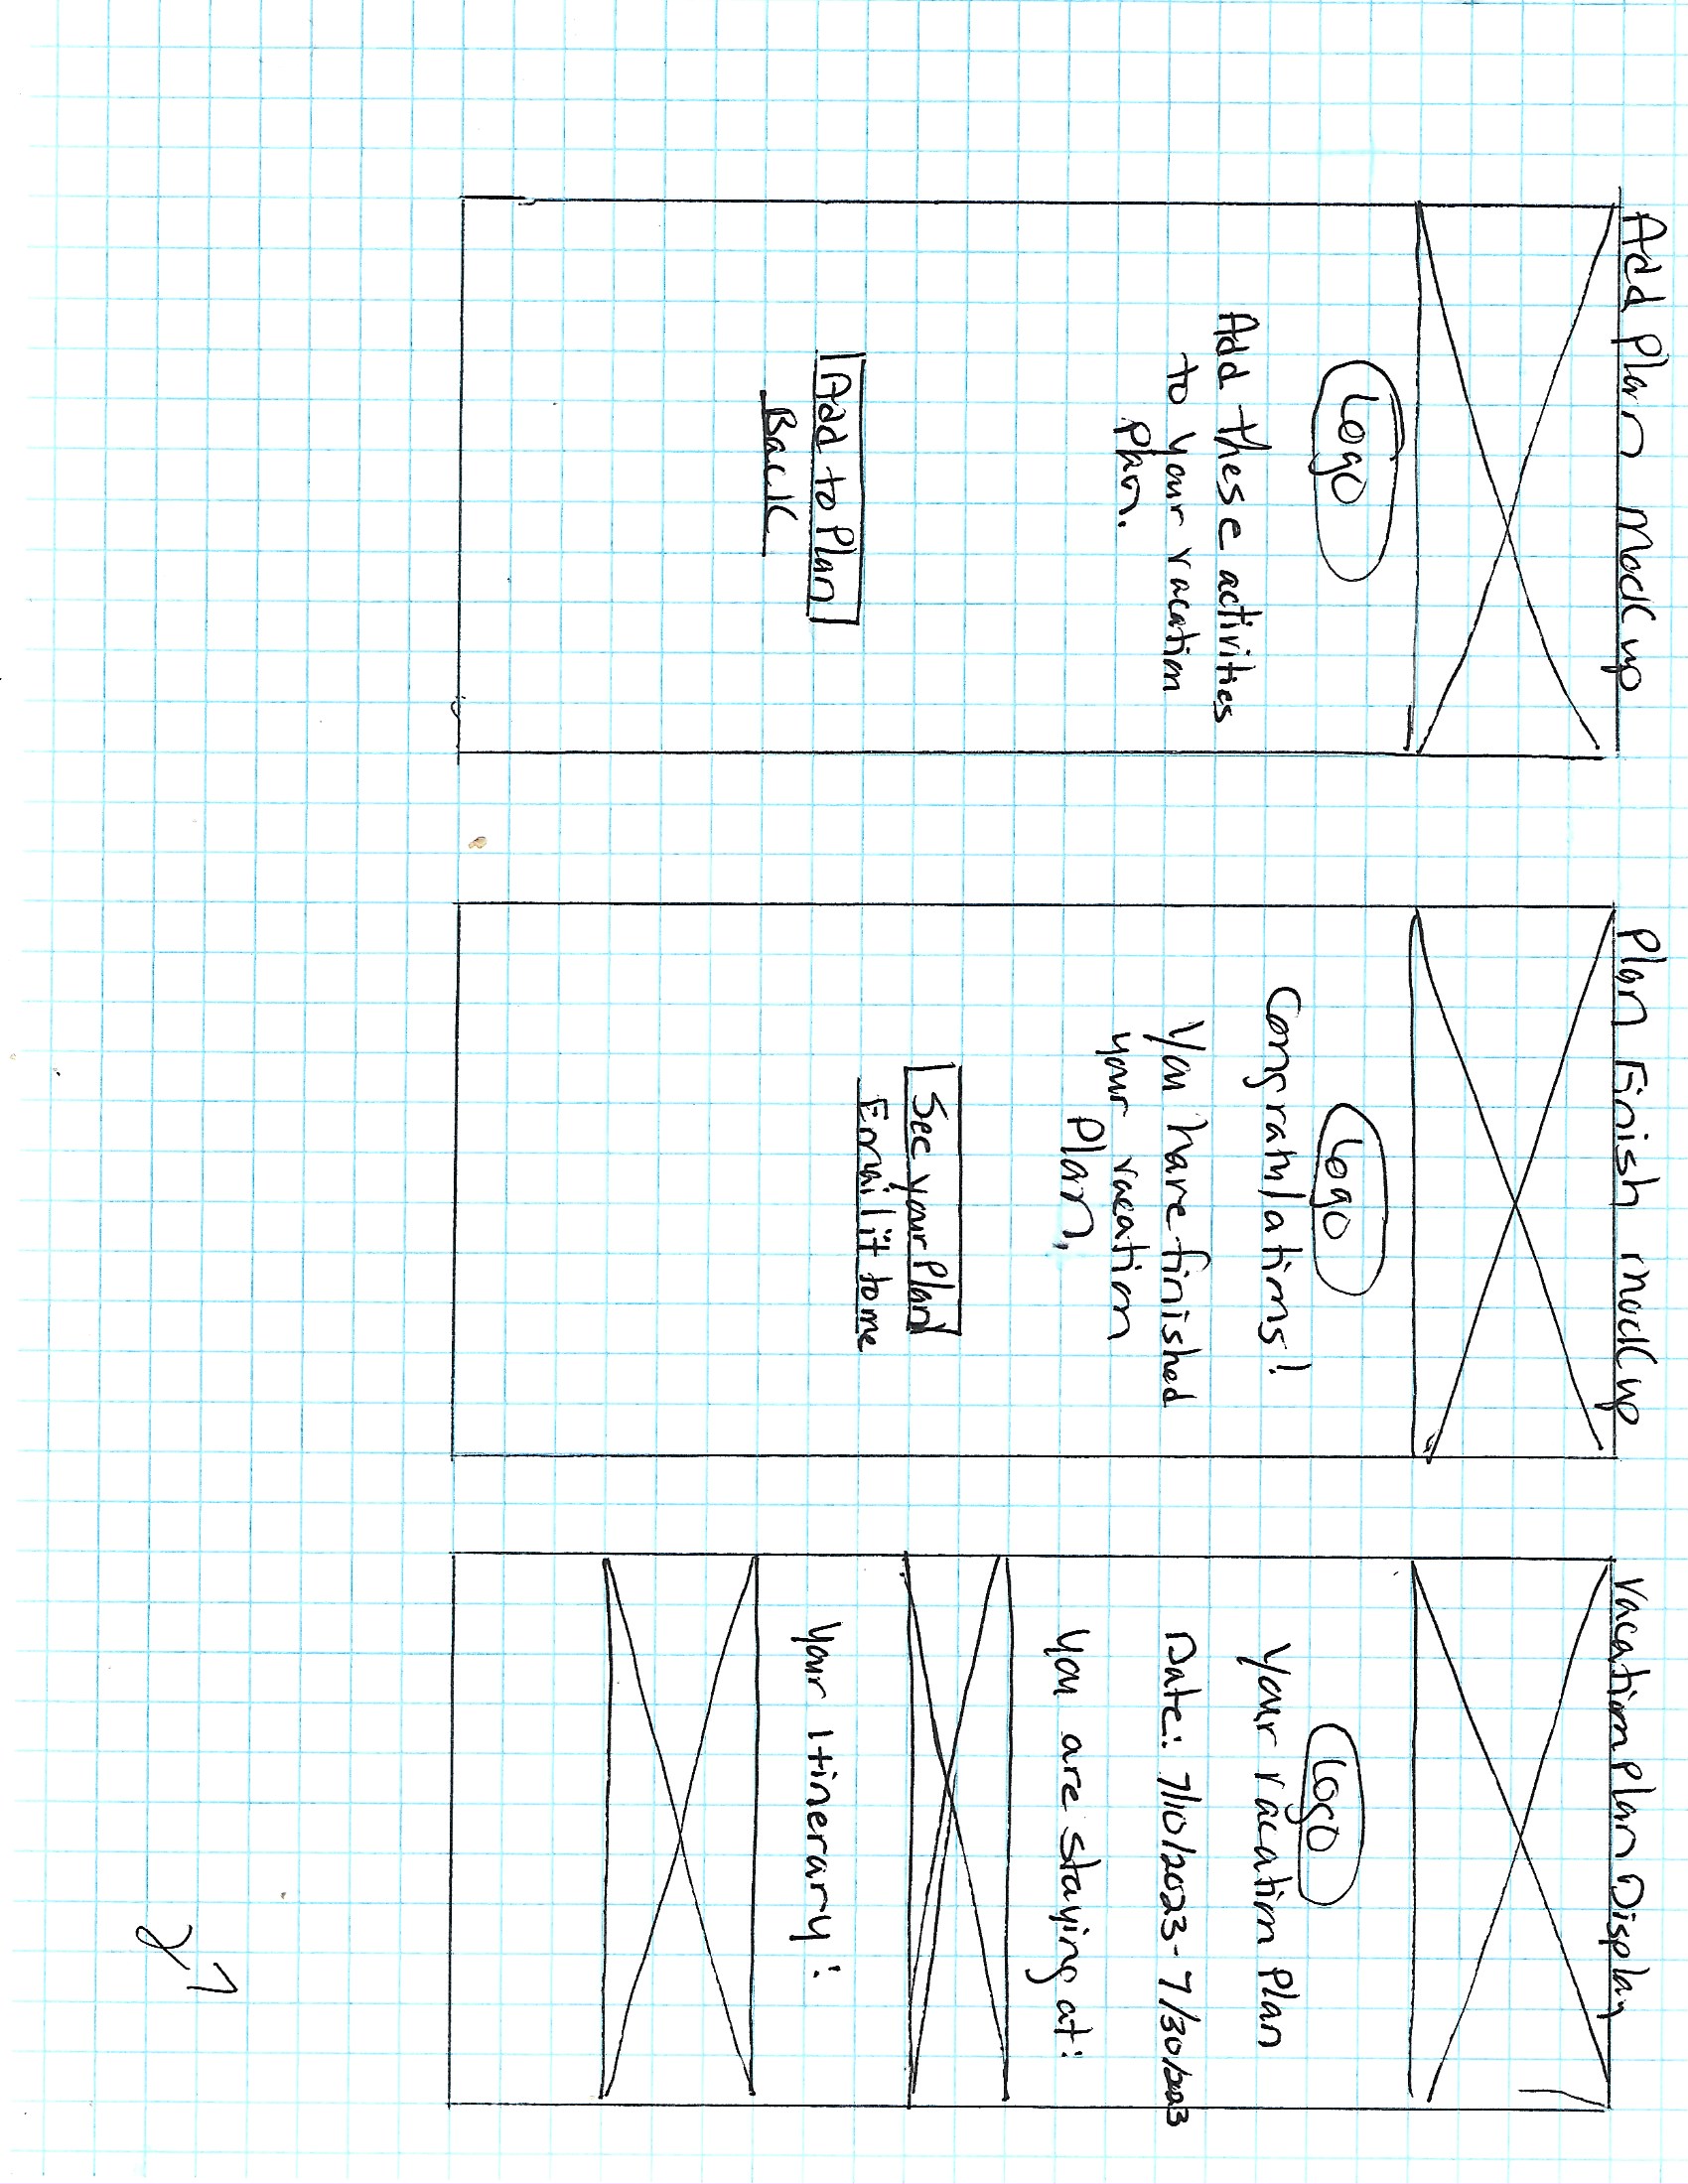 Add Plan Mockup
Logo
Add these activities
to your vacation
Plan.
Add to Plan
Back
Plan Finish mockup
Logo
Congratulations!
You have finished
your vacation
Plan.
See your Plan
Email it to me
Vacation Plan Display
Logo
Your vacation Plan
Date: 7/10/2023-7/30/2023
You are staying at:
Your Itinerary: